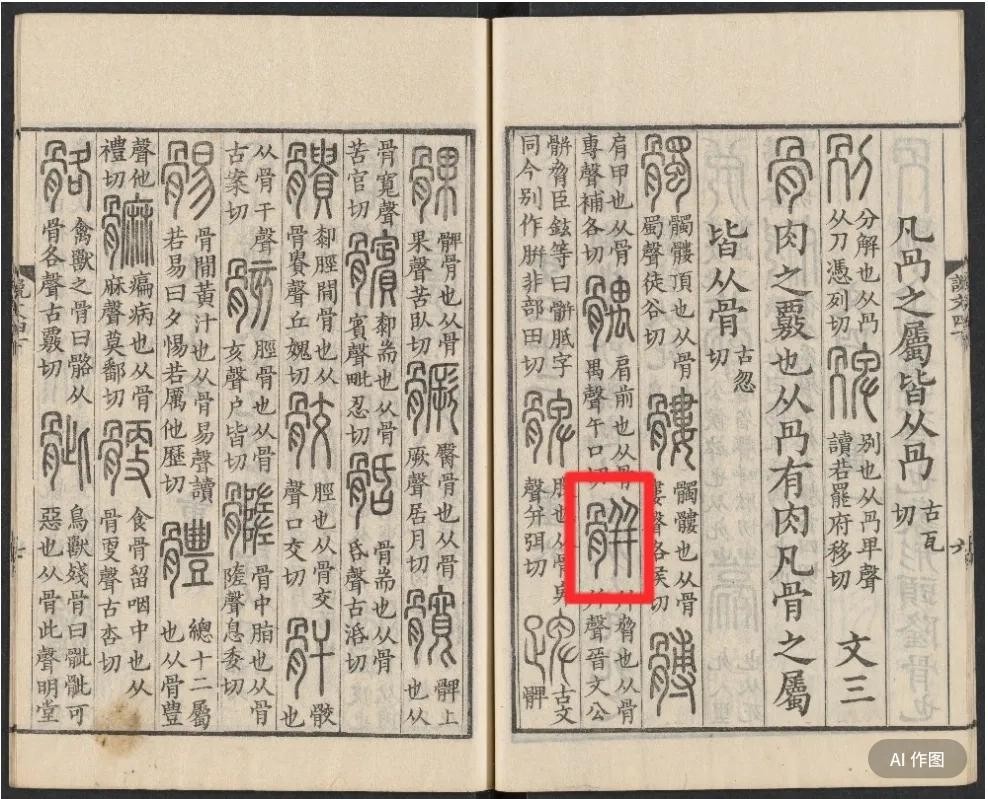 凡冎之屬皆从冎 古瓦切
別 分解也从冎从刀憑列切 𩨨 別也从冎卑聲讀若罷府移切 文三
骨 肉之覈也从冎有肉凡骨之屬
皆从骨 古忽切
髑 髑髏頂也从骨蜀聲徒谷切 髏 髑髏也从骨婁聲洛矦切 髆
肩甲也从骨專聲補各切 髃 肩前也从骨禺聲午口切 骿 并脅也从骨并聲晉文公
骿脅臣鉉等曰骿胝字同今別作胼非部田切 髀 股也从骨卑聲并弭切 𨈚 古文髀
說文四下
髁 髀骨也从骨果聲苦臥切 𩪗 臀骨也从骨厥聲居月切 髖 髀上也从
骨寬聲苦官切 髕 厀耑也从骨賓聲毗忍切 𩨬 骨耑也从骨昏聲古活切
䯣 厀脛間骨也从骨貴聲丘媿切 骹 脛也从骨交聲口交切 骭 骹也
从骨干聲古案切 骸 脛骨也从骨亥聲戶皆切 髓 骨中脂也从骨隓聲息委切
䯜 骨間黃汁也从骨易聲讀若易曰夕惕若厲他歷切 體 總十二屬也从骨豊
聲他禮切 髍 㾫病也从骨麻聲莫鄱切 骾 食骨留咽中也从骨㪅聲古杏切
骼 禽獸之骨曰骼从骨各聲古覈切 骴 鳥獸殘骨曰骴骴可惡也从骨此聲明堂
AI 作图